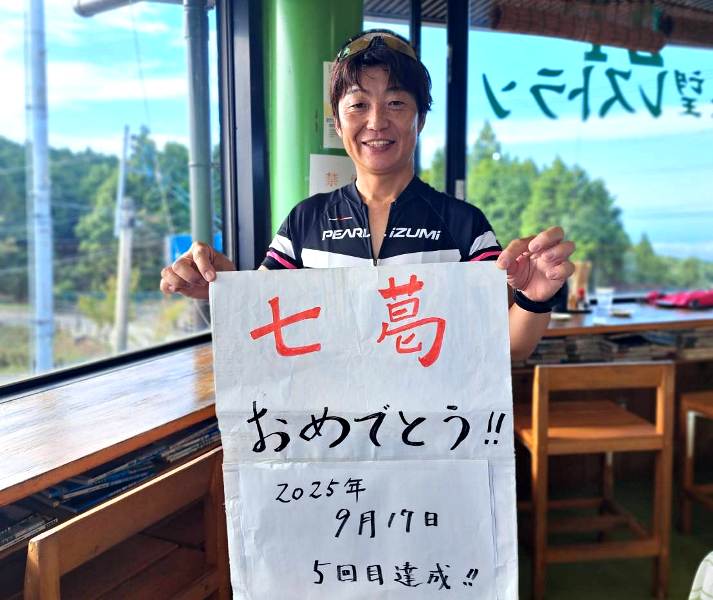 望レストラン
禁
PEARL iZUMi
七葛
おめでとう!!
2025年
9月17日
5回目達成!!